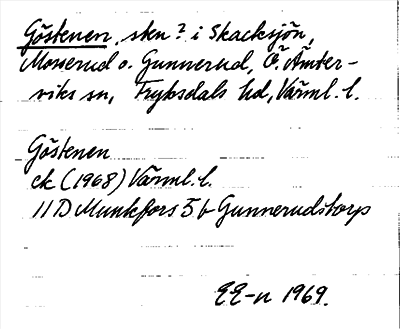 Göstenen, skn? i Skacksjön,
Mosserud o. Gunnerud, Ö. Ämter-
viks sn, Fryksdals hd, Värml. l.
Göstenen
ek (1968) Värml. l.
11 D Munkfors 5 b Gunnerudstorp
EE-n 1969.